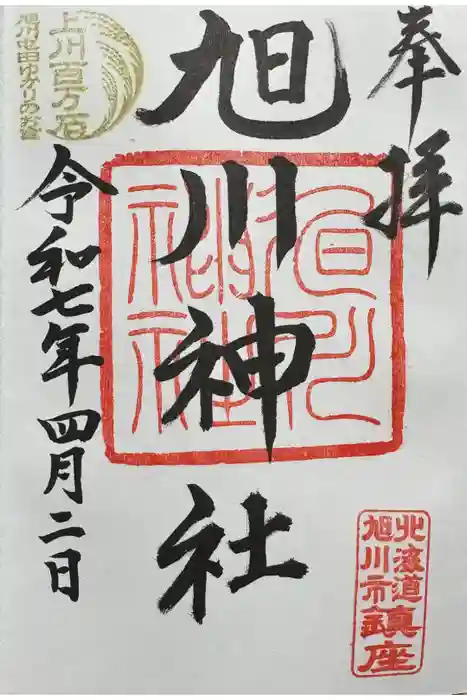 奉拝
旭川神社
旭川神社
令和七年四月二日
上川百万石
旭川屯田ゆかりのお宮
北海道
旭川市
鎮座